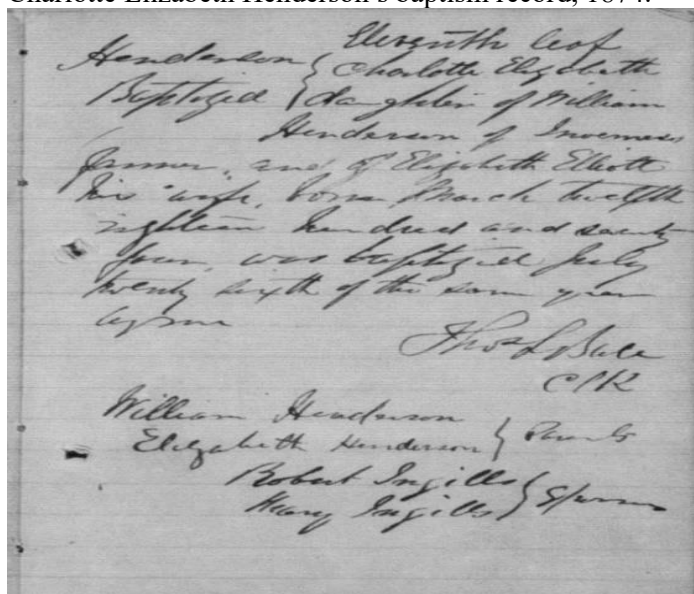 Charlotte Elizabeth Henderson's baptism record, 1874.
Eleventh leaf
Henderson { Charlotte Elizabeth
Baptized { daughter of William
Henderson of Inverness
farmer, and of Elizabeth Elliott
his wife, born March twelfth
eighteen hundred and seventy
four, was baptized July
twenty sixth of the same year
by me
Thos L Ball
William Henderson
Elizabeth Henderson } Parents
Robert Ingills
Henry Ingills }